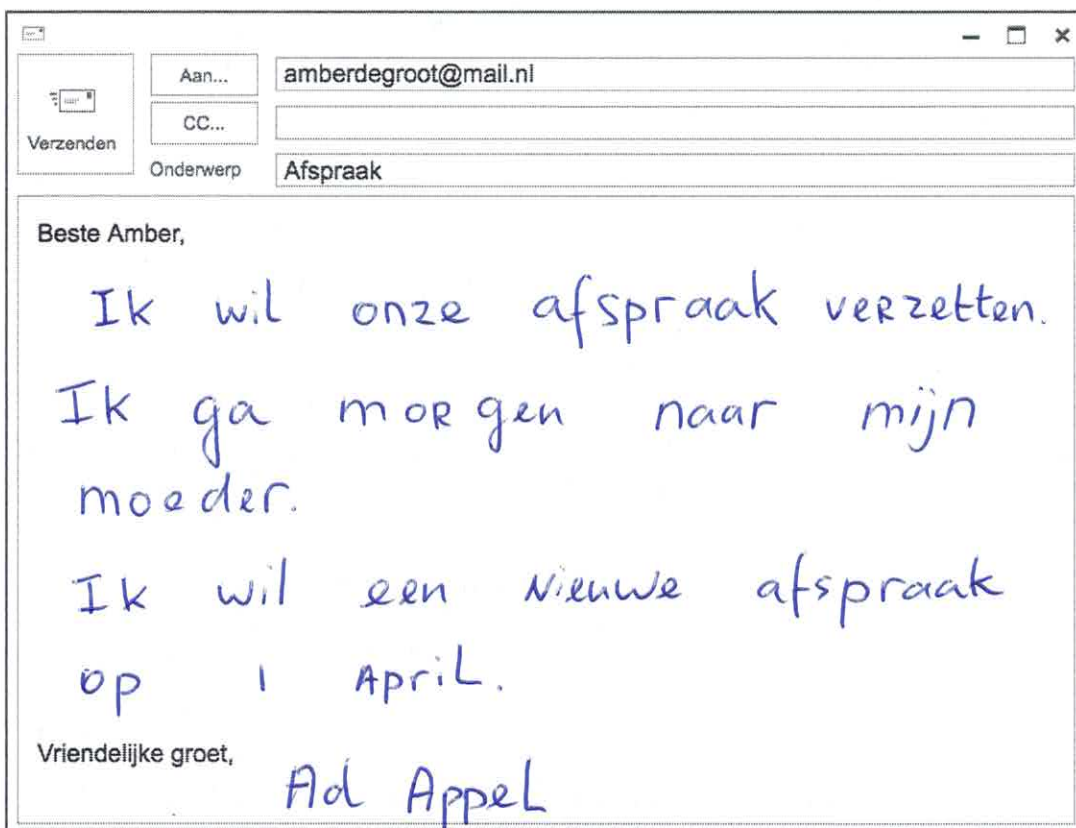 Aan...
amberdegroot@mail.nl
CC...
Verzenden
Onderwerp
Afspraak
Beste Amber,
Ik wil onze afspraak verzetten.
Ik ga morgen naar mijn
moeder.
Ik wil een nieuwe afspraak
op 1 April.
Vriendelijke groet,
Ad Appel